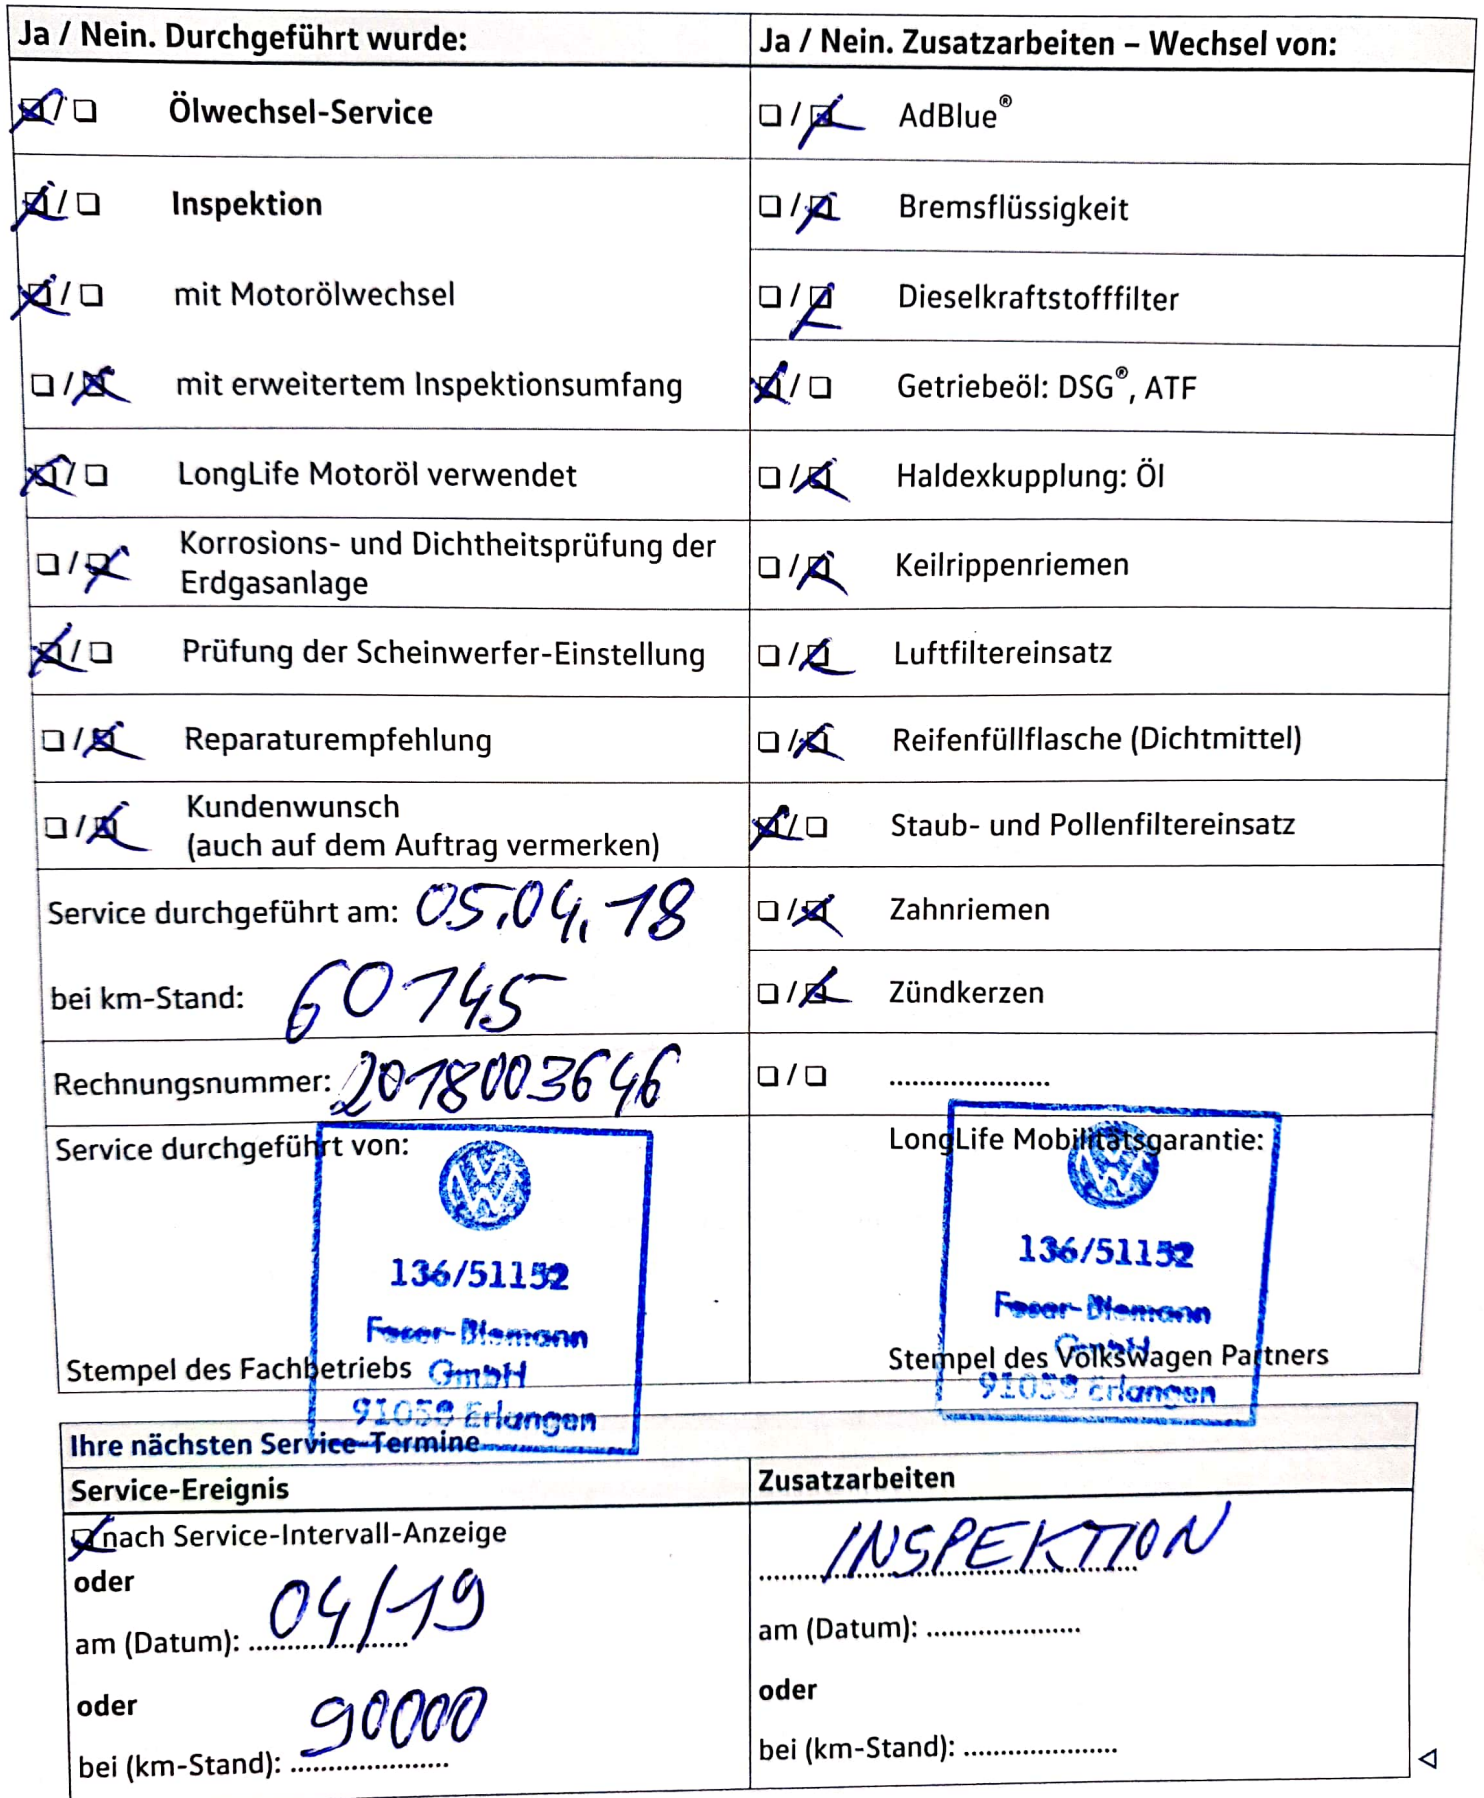 Ja / Nein. Durchgeführt wurde:
/ Ölwechsel-Service
/ Inspektion
/ mit Motorölwechsel
/ mit erweitertem Inspektionsumfang
/ LongLife Motoröl verwendet
/ Korrosions- und Dichtheitsprüfung der
Erdgasanlage
/ Prüfung der Scheinwerfer-Einstellung
/ Reparaturempfehlung
/ Kundenwunsch
(auch auf dem Auftrag vermerken)
Service durchgeführt am: 05.04.18
bei km-Stand: 60145
Rechnungsnummer: 2018003646
Service durchgeführt von:
VW
136/51152
GmbH
Stempel des Fachbetriebs
Erlangen
Ja / Nein. Zusatzarbeiten – Wechsel von:
/ AdBlue®
/ Bremsflüssigkeit
/ Dieselkraftstofffilter
/ Getriebeöl: DSG®, ATF
/ Haldexkupplung: Öl
/ Keilrippenriemen
/ Luftfiltereinsatz
/ Reifenfüllflasche (Dichtmittel)
/ Staub- und Pollenfiltereinsatz
/ Zahnriemen
/ Zündkerzen
/ .....................
LongLife Mobilitätsgarantie:
VW
136/51152
GmbH
Stempel des Volkswagen Partners
Erlangen
Ihre nächsten Service-Termine
Service-Ereignis
nach Service-Intervall-Anzeige
oder
am (Datum): 04/19
oder
bei (km-Stand): 90000
Zusatzarbeiten
INSPEKTION
am (Datum): .....................
oder
bei (km-Stand): .....................